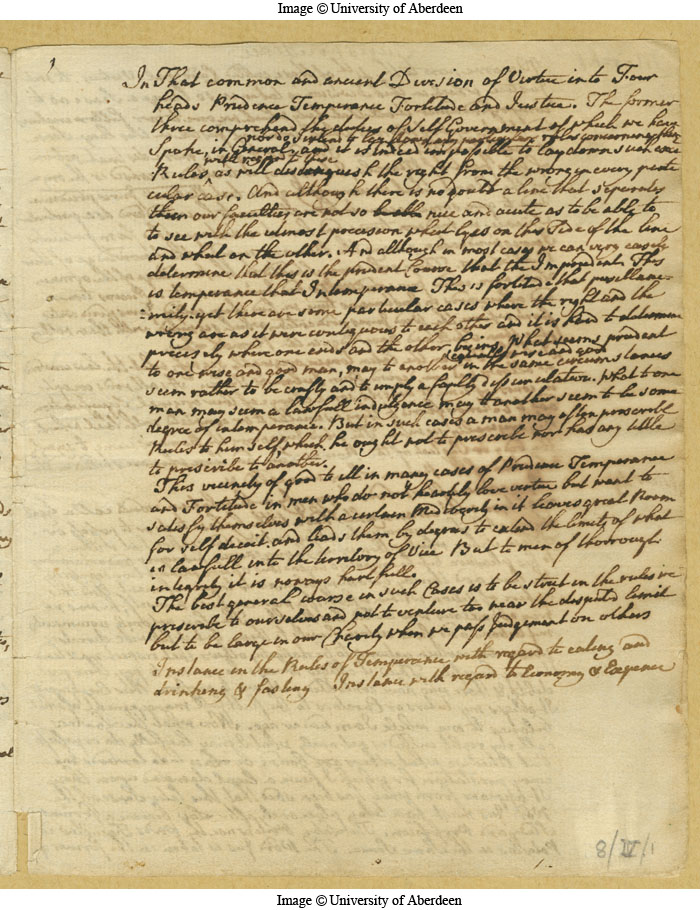 Image © University of Aberdeen
1
In That common and ancient Division of Virtue into Four
heads Prudence Temperance Fortitude and Justice. The former
three comprehend the dutys of Self Government of which we have
Spoke, in General,
and it is indeed impossible to lay down such
with regard to these
Rules, as will distinguish the right from the wrong in every parti
cular case. And although there is no doubt a line that seperates
them our faculties are not so nice and acute as to be able to
to see with the utmost precision what lyes on this Side of the line
and what on the other. And although in most cases we can very easily
determine that this is the prudent Course that the Imprudent. This
is temperance that Intemperance This is fortitude that pusillani-
-mity. yet there are some particular cases where the right and the
wrong are as it were contiguous to each other and it is hard to determine
precisely where one ends and the other begins. What seems prudent
equally wise and good
to one wise and good man, may to another in the same circumstances
seem rather to be crafty and to imply a faulty dissimulation. What to one
man may seem a lawfull indulgence may to another seem to be some
degree of intemperance. But in such cases a man may often prescribe
Rules to himself which he ought not to prescribe nor has any title
to prescribe to another.
This vicinity of good to ill in many cases of Prudence Temperance
and Fortitude in men who do not heartily love virtue but want to
satisfy themselves with a certain Mediocrity in it leaves great Room
for self deceit and leads them by degrees to extend the limits of what
is lawfull into the territory of Vice But to men of thorrough
integrity it is noways hurtfull.
The best general course in such Cases is to be strict in the rules we
prescribe to ourselves and not to venture too near the disputed limit
but to be large in our Charity when we pass Judgement on others
Instance in the Rules of Temperance with regard to eating and
drinking & fasting Instance with regard to Economy & Expence
8/IV/1
Image © University of Aberdeen